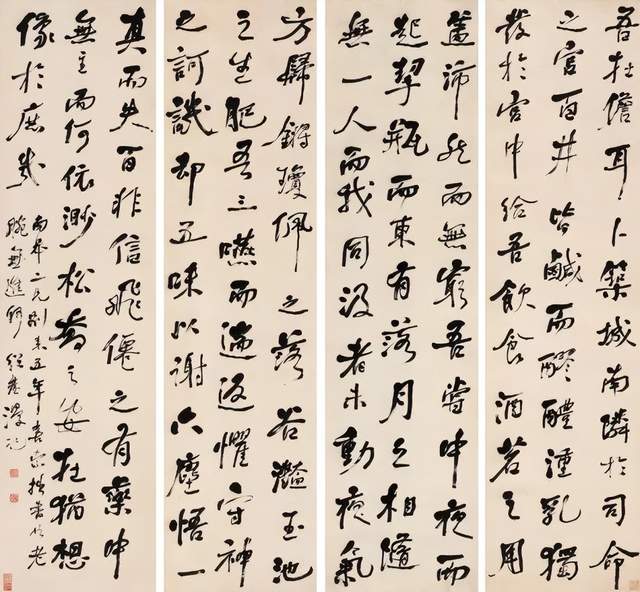 吾在儋耳卜築城南隣於司命
之宮百井皆鹹而醪醴湩乳獨
發於宮中給吾飲食酒茗之用
蓋沛然而無窮吾嘗中夜而
起挈瓶而東有落月之相隨
無一人而我同汲者未動夜氣
方歸鏘瓊佩之落谷灩玉池
之生肥吾三嚥而遄返懼守神
之訶譏却五味以謝六塵悟一
真而失百非信飛僊之有藥中
無主而何依渺松喬之安在猶想
像於庶幾
二兄別五年書老
腕無進